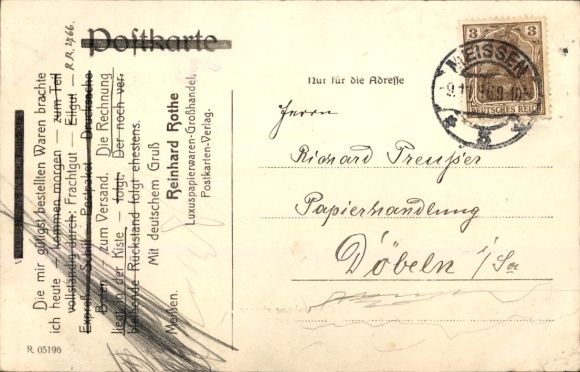 Postkarte
Die mir gütigst bestellten Waren brachte
ich heute — kommen morgen — zum Teil
vollständig durch: Frachtgut — Eilgut — R.R. 2766.
Express — Schiff — Postpaket — Drucksache
Boten — zum Versand. Die Rechnung
liegt in der Kiste — folgt. Der noch ver-
bleibende Rückstand folgt ehestens.
Mit deutschem Gruß
Reinhard Rothe
Luxuspapierwaren-Großhandel,
Postkarten-Verlag.
Meißen.
R. 05196
3 3
DEUTSCHES REICH
MEISSEN
Nur für die Adresse
Herrn
Richard Preußer
Papierhandlung
Döbeln i/Sa